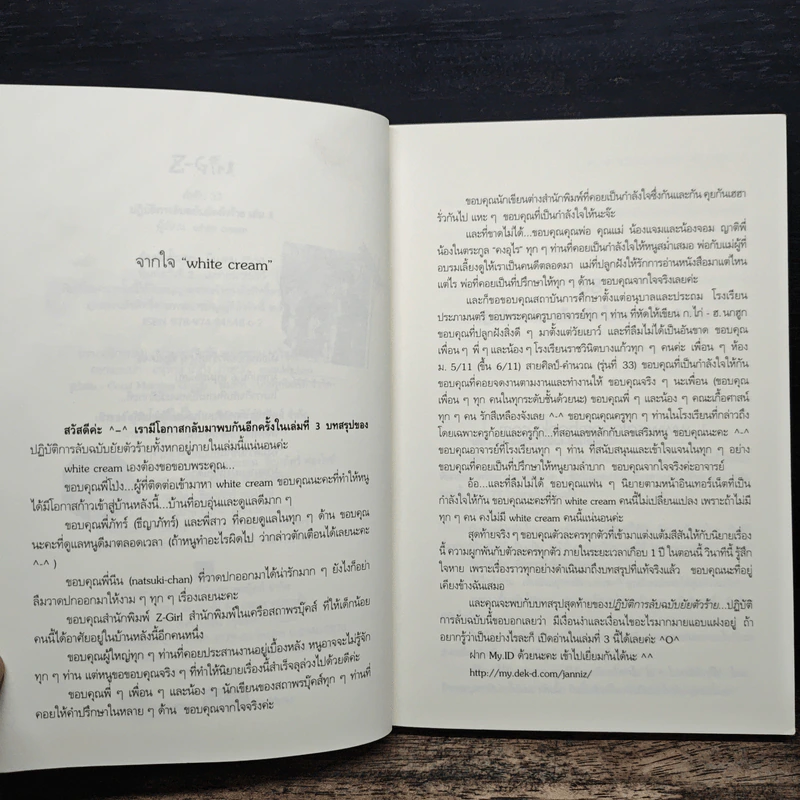 จากใจ "white cream"
สวัสดีค่ะ ^_^ เรามีโอกาสกลับมาพบกันอีกครั้งในเล่มที่ 3 บทสรุปของ
ปฏิบัติการลับฉบับยัยตัวร้ายทั้งหกอยู่ภายในเล่มนี้แน่นอนค่ะ
white cream เองต้องขอขอบพระคุณ...
ขอบคุณพี่โปง...ผู้ที่ติดต่อเข้ามาหา white cream ขอบคุณนะคะที่ทำให้หนู
ได้มีโอกาสก้าวเข้าสู่บ้านหลังนี้...บ้านที่อบอุ่นและดูแลดีมาก ๆ
ขอบคุณพี่ภัทร์ (ธีญาภัทร์) และพี่สาว ที่คอยดูแลในทุก ๆ ด้าน ขอบคุณ
นะคะที่ดูแลหนูดีมาตลอดเวลา (ถ้าหนูทำอะไรผิดไป ว่ากล่าวตักเตือนได้เลยนะคะ
^-^ )
ขอบคุณพี่นีน (natsuki-chan) ที่วาดปกออกมาได้น่ารักมาก ๆ ยังไงก็อย่า
ลืมวาดปกออกมาให้งาม ๆ ทุก ๆ เรื่องเลยนะคะ
ขอบคุณสำนักพิมพ์ Z-Girl สำนักพิมพ์ในเครือสถาพรบุ๊คส์ ที่ให้เด็กน้อย
คนนี้ได้อาศัยอยู่ในบ้านหลังนี้อีกคนหนึ่ง
ขอบคุณผู้ใหญ่ทุก ๆ ท่านที่คอยประสานงานอยู่เบื้องหลัง หนูอาจจะไม่รู้จัก
ทุก ๆ ท่าน แต่หนูขอขอบคุณจริง ๆ ที่ทำให้นิยายเรื่องนี้สำเร็จลุล่วงไปด้วยดีค่ะ
ขอบคุณพี่ ๆ เพื่อน ๆ และน้อง ๆ นักเขียนของสถาพรบุ๊คส์ทุก ๆ ท่านที่
คอยให้คำปรึกษาในหลาย ๆ ด้าน ขอบคุณจากใจจริงค่ะ
ขอบคุณนักเขียนต่างสำนักพิมพ์ที่คอยเป็นกำลังใจซึ่งกันและกัน คุยกันเฮฮา
รั่วกันไป แหะ ๆ ขอบคุณที่เป็นกำลังใจให้นะจ๊ะ
และที่ขาดไม่ได้...ขอบคุณคุณพ่อ คุณแม่ น้องแจมและน้องจอม ญาติพี่
น้องในตระกูล "คงอุไร" ทุก ๆ ท่านที่คอยเป็นกำลังใจให้หนูสม่ำเสมอ พ่อกับแม่ผู้ที่
อบรมเลี้ยงดูให้เราเป็นคนดีตลอดมา แม่ที่ปลูกฝังให้รักการอ่านหนังสือมาแต่ไหน
แต่ไร พ่อที่คอยเป็นที่ปรึกษาให้ทุก ๆ ด้าน ขอบคุณจากใจจริงเลยค่ะ
และก็ขอขอบคุณสถาบันการศึกษาตั้งแต่อนุบาลและประถม โรงเรียน
ประภามนตรี ขอบพระคุณครูบาอาจารย์ทุก ๆ ท่าน ที่หัดให้เขียน ก.ไก่ - ฮ.นกฮูก
ขอบคุณที่ปลูกฝังสิ่งดี ๆ มาตั้งแต่วัยเยาว์ และที่ลืมไม่ได้เป็นอันขาด ขอบคุณ
เพื่อน ๆ พี่ ๆ และน้อง ๆ โรงเรียนราชวินิตบางแก้วทุก ๆ คนค่ะ เพื่อน ๆ ห้อง
ม. 5/11 (ขึ้น 6/11) สายศิลป์-คำนวณ (รุ่นที่ 33) ขอบคุณที่เป็นกำลังใจให้กัน
ขอบคุณที่คอยจดงานตามงานและทำงานให้ ขอบคุณจริง ๆ นะเพื่อน (ขอบคุณ
เพื่อน ๆ ทุก ๆ คนในทุกระดับชั้นด้วยนะ) ขอบคุณพี่ ๆ และน้อง ๆ คณะเกื้อศาสน์
ทุก ๆ คน รักสีเหลืองจังเลย ^-^ ขอบคุณคุณครูทุก ๆ ท่านในโรงเรียนที่กล่าวถึง
โดยเฉพาะครูก้อยและครูกุ๊ก...ที่สอนเลขหลักกับเลขเสริมหนู ขอบคุณนะคะ ^-^
ขอบคุณอาจารย์ที่โรงเรียนทุก ๆ ท่าน ที่สนับสนุนและเข้าใจแจนในทุก ๆ อย่าง
ขอบคุณที่คอยเป็นที่ปรึกษาให้หนูยามลำบาก ขอบคุณจากใจจริงค่ะอาจารย์
อ้อ...และที่ลืมไม่ได้ ขอบคุณแฟน ๆ นิยายตามหน้าอินเทอร์เน็ตที่เป็น
กำลังใจให้กัน ขอบคุณนะคะที่รัก white cream คนนี้ไม่เปลี่ยนแปลง เพราะถ้าไม่มี
ทุก ๆ คน คงไม่มี white cream คนนี้แน่นอนค่ะ
สุดท้ายจริง ๆ ขอบคุณตัวละครทุกตัวที่เข้ามาแต่งแต้มสีสันให้กับนิยายเรื่อง
นี้ ความผูกพันกับตัวละครทุกตัว ภายในระยะเวลาเกือบ 1 ปี ในตอนนี้ วินาทีนี้ รู้สึก
ใจหาย เพราะเรื่องราวทุกอย่างดำเนินมาถึงบทสรุปที่แท้จริงแล้ว ขอบคุณนะที่อยู่
เคียงข้างฉันเสมอ
และคุณจะพบกับบทสรุปสุดท้ายของปฏิบัติการลับฉบับยัยตัวร้าย...ปฏิบัติ
การลับฉบับนี้ขอบอกเลยว่า มีเงื่อนงำและเงื่อนไขอะไรมากมายแอบแฝงอยู่ ถ้า
อยากรู้ว่าเป็นอย่างไรละก็ เปิดอ่านในเล่มที่ 3 นี้ได้เลยค่ะ ^O^
ฝาก My.ID ด้วยนะคะ เข้าไปเยี่ยมกันได้นะ ^^
http://my.dek-d.com/janniz/